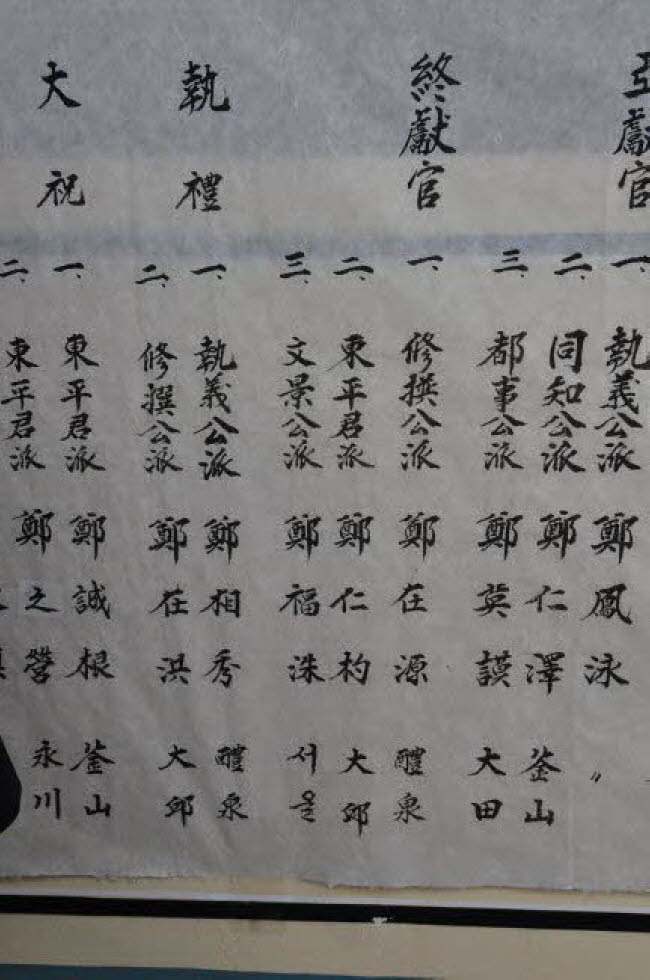 亞獻官
一、執義公派 鄭鳳泳 〃
二、同知公派 鄭仁澤 釜山
三、都事公派 鄭 謨 大田
終獻官
一、修撰公派 鄭在源 醴泉
二、東平君派 鄭仁杓 大邱
三、文景公派 鄭福洙 서울
執禮
一、執義公派 鄭相秀 醴泉
二、修撰公派 鄭在洪 大邱
大祝
一、東平君派 鄭誠根 釜山
二、東平君派 鄭之營 永川